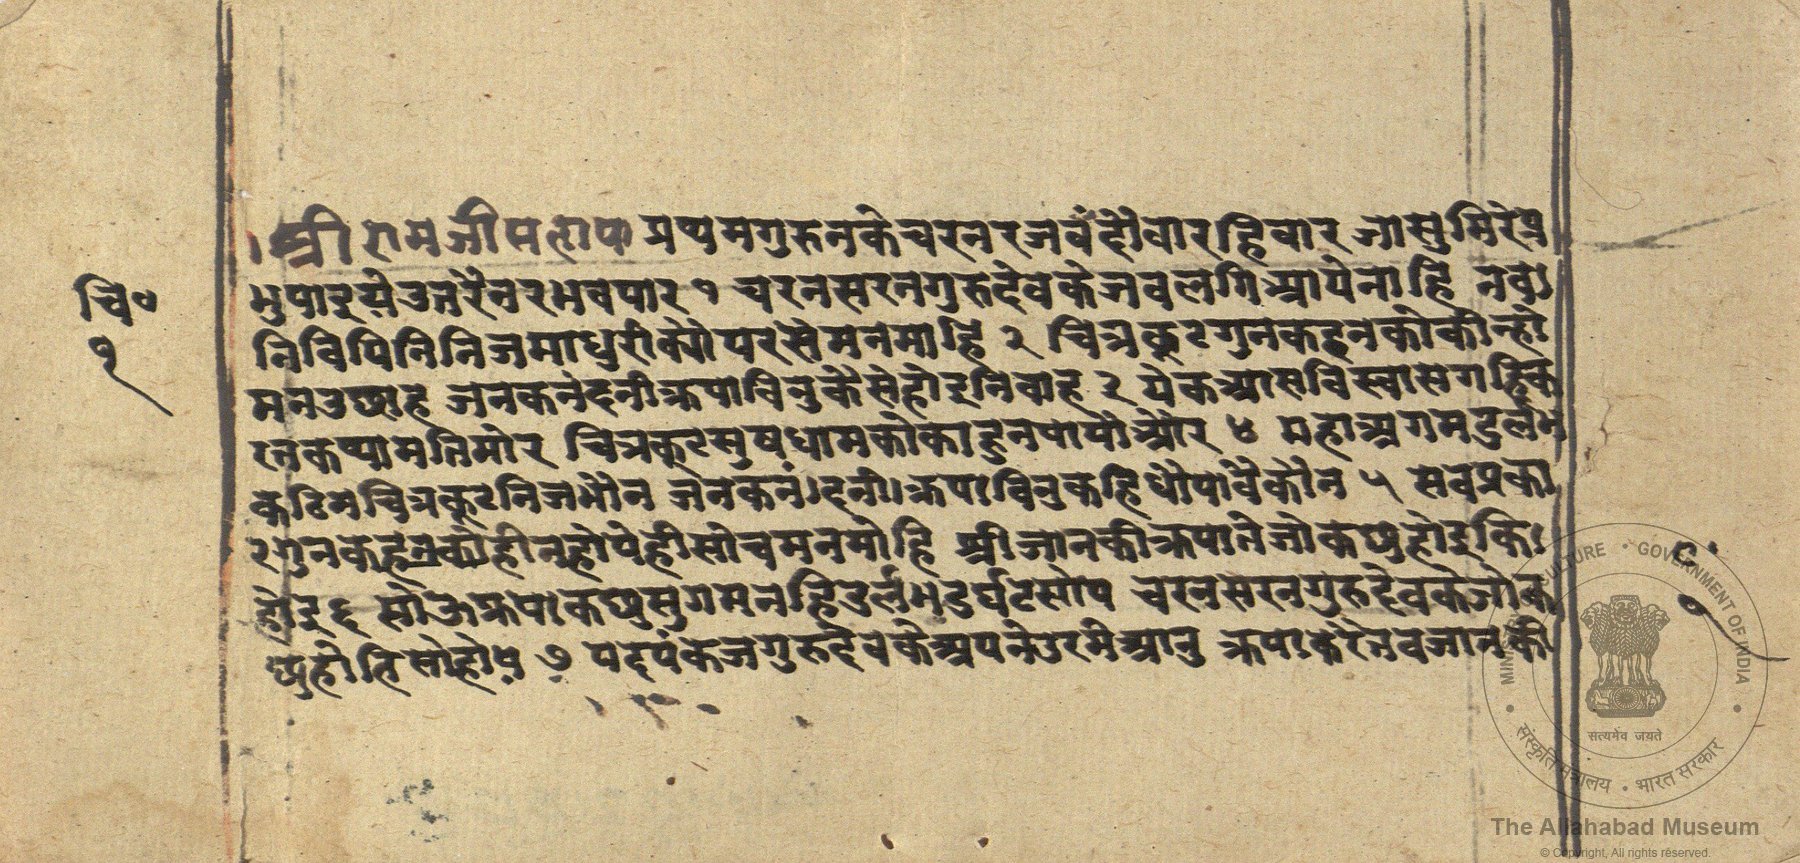 श्री राम जी सहाय प्रथमगुरुनकेचरनरजवंदौवारहिवार जासुमिरेप्र
भुपाइयेउतरैनरभवपार १ चरनसरनगुरुदेवकेजवलगिआयेनाहि नव
निविपिनिनिजमाधुरीक्योपरसैमनमाहि २ चित्रकूटगुनकहनकोकीन्हो
मनउछाह जनकनंदनीक्रपाविनुकैसेहोइनिवाह ३ येकआसविस्वासगहिक
रनकथामतिमोर चित्रकूटसुषधामकोकाहुनपायौओर ४ महाअगमदुर्लभ
कठिनचित्रकूटनिजभौन जनकनंदनीक्रपाविनुकहिधौपावैकौन ५ सवप्रका
रगुनकहनकोहीनहोयेहीसोचमनमोहि श्रीजानकीक्रपातेजोकछुहोइकि
होइ ६ सोऊक्रपाकछुसुगमनहिदुर्लभदुर्घटसोय चरनसरनगुरुदेवकेजोक
छुहोतिसोहोय ७ पदपंकजगुरुदेवकेअपनेउरमेआनु क्रपाकरेतवजानकी
चि०
१
सत्यमेव जयते
MINISTRY OF CULTURE • GOVERNMENT OF INDIA
संस्कृति मंत्रालय • भारत सरकार
The Allahabad Museum
© Copyright, All rights reserved.